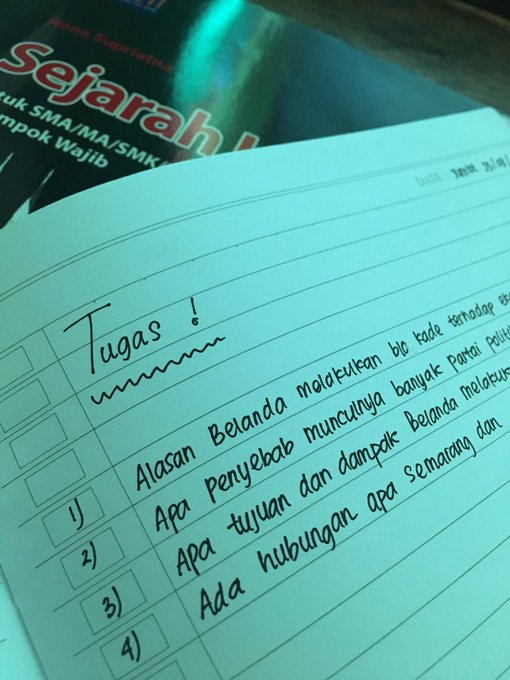 Nana Supriatna
Sejarah
untuk SMA/MA/SMK/
Wajib
DATE Jum'at 25/09/
Tugas !
1) Alasan Belanda melakukan blo kade terhadap
2) Apa penyebab munculnya banyak partai
3) Apa tujuan dan dampak Belanda
4) Ada hubungan apa semarang dan